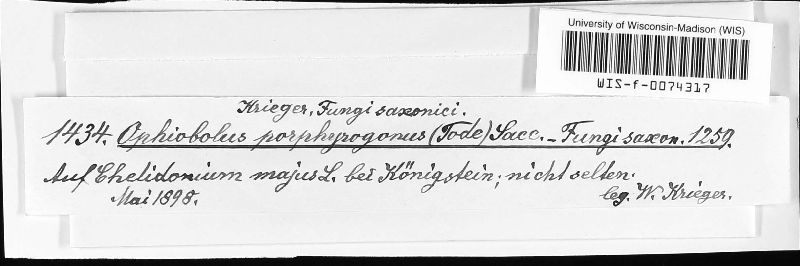 University of Wisconsin-Madison (WIS)
WIS-f-0074317
Krieger, Fungi saxonici.
1434. Ophiobolus porphyrogonus (Tode) Sacc. - Fungi saxon. 1259.
Auf Chelidonium majus L. bei Königstein; nicht selten.
Mai 1898. leg. W. Krieger.